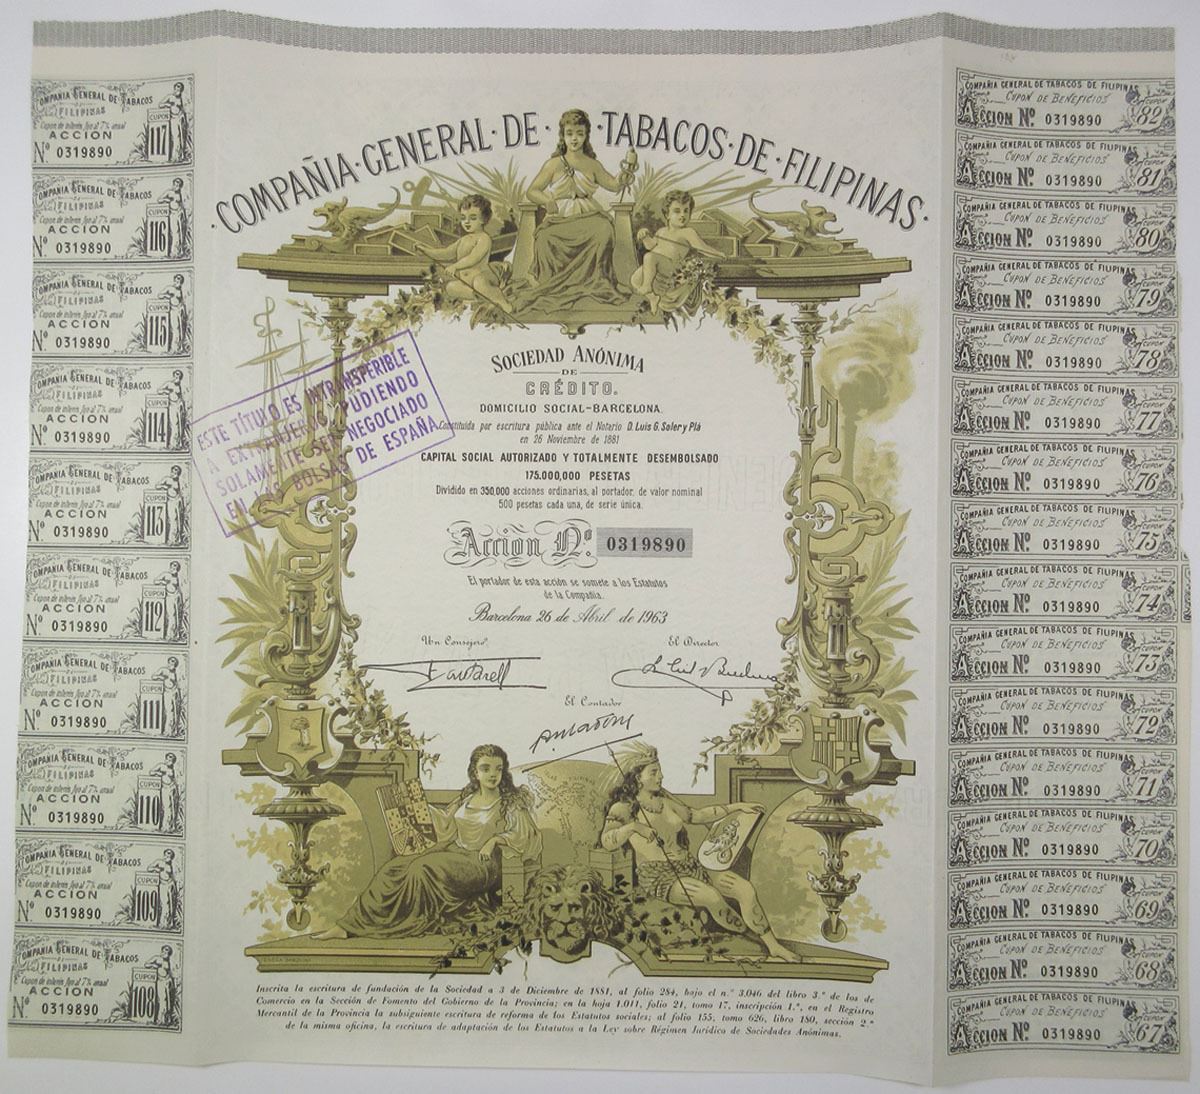 COMPAÑIA·GENERAL·DE·TABACOS·DE·FILIPINAS·
SOCIEDAD ANÓNIMA
DE
CRÉDITO.
DOMICILIO SOCIAL-BARCELONA.
Constituida por escritura pública ante el Notario D. Luis G. Soler y Plá
en 26 Noviembre de 1881
CAPITAL SOCIAL AUTORIZADO Y TOTALMENTE DESEMBOLSADO
175.000,000 PESETAS
Dividido en 350,000 acciones ordinarias, al portador, de valor nominal
500 pesetas cada una, de serie única.
Acción Nº. 0319890
El portador de esta acción se somete a los Estatutos
de la Compañia.
Barcelona 26 de Abril de 1963
Un Consejero. El Director
El Contador
ESTE TÍTULO ES INTRANSFERIBLE
A EXTRANJEROS PUDIENDO
SOLAMENTE SER NEGOCIADO
EN LAS BOLSAS DE ESPAÑA
Inscrita la escritura de fundación de la Sociedad a 3 de Diciembre de 1881, al folio 284, bajo el n.º 3.046 del libro 3.º de los de
Comercio en la Sección de Fomento del Gobierno de la Provincia; en la hoja 1.011, folio 21, tomo 17, inscripción 1.ª, en el Registro
Mercantil de la Provincia la subsiguiente escritura de reforma de los Estatutos sociales; al folio 155, tomo 626, libro 180, sección 2.ª
de la misma oficina, la escritura de adaptación de los Estatutos a la Ley sobre Régimen Jurídico de Sociedades Anónimas.
COMPAÑIA GENERAL DE TABACOS
FILIPINAS
Cupon de interés fijo al 7% anual
ACCION
Nº 0319890
CUPON
117
COMPAÑIA GENERAL DE TABACOS
FILIPINAS
Cupon de interés fijo al 7% anual
ACCION
Nº 0319890
CUPON
116
COMPAÑIA GENERAL DE TABACOS
FILIPINAS
Cupon de interés fijo al 7% anual
ACCION
Nº 0319890
CUPON
115
COMPAÑIA GENERAL DE TABACOS
FILIPINAS
Cupon de interés fijo al 7% anual
ACCION
Nº 0319890
CUPON
114
COMPAÑIA GENERAL DE TABACOS
FILIPINAS
Cupon de interés fijo al 7% anual
ACCION
Nº 0319890
CUPON
113
COMPAÑIA GENERAL DE TABACOS
FILIPINAS
Cupon de interés fijo al 7% anual
ACCION
Nº 0319890
CUPON
112
COMPAÑIA GENERAL DE TABACOS
FILIPINAS
Cupon de interés fijo al 7% anual
ACCION
Nº 0319890
CUPON
111
COMPAÑIA GENERAL DE TABACOS
FILIPINAS
Cupon de interés fijo al 7% anual
ACCION
Nº 0319890
CUPON
110
COMPAÑIA GENERAL DE TABACOS
FILIPINAS
Cupon de interés fijo al 7% anual
ACCION
Nº 0319890
CUPON
109
COMPAÑIA GENERAL DE TABACOS
FILIPINAS
Cupon de interés fijo al 7% anual
ACCION
Nº 0319890
CUPON
108
COMPAÑIA GENERAL DE TABACOS DE FILIPINAS
CUPON DE BENEFICIOS
ACCION Nº. 0319890
CUPON 82
COMPAÑIA GENERAL DE TABACOS DE FILIPINAS
CUPON DE BENEFICIOS
ACCION Nº. 0319890
CUPON 81
COMPAÑIA GENERAL DE TABACOS DE FILIPINAS
CUPON DE BENEFICIOS
ACCION Nº. 0319890
CUPON 80
COMPAÑIA GENERAL DE TABACOS DE FILIPINAS
CUPON DE BENEFICIOS
ACCION Nº. 0319890
CUPON 79
COMPAÑIA GENERAL DE TABACOS DE FILIPINAS
CUPON DE BENEFICIOS
ACCION Nº. 0319890
CUPON 78
COMPAÑIA GENERAL DE TABACOS DE FILIPINAS
CUPON DE BENEFICIOS
ACCION Nº. 0319890
CUPON 77
COMPAÑIA GENERAL DE TABACOS DE FILIPINAS
CUPON DE BENEFICIOS
ACCION Nº. 0319890
CUPON 76
COMPAÑIA GENERAL DE TABACOS DE FILIPINAS
CUPON DE BENEFICIOS
ACCION Nº. 0319890
CUPON 75
COMPAÑIA GENERAL DE TABACOS DE FILIPINAS
CUPON DE BENEFICIOS
ACCION Nº. 0319890
CUPON 74
COMPAÑIA GENERAL DE TABACOS DE FILIPINAS
CUPON DE BENEFICIOS
ACCION Nº. 0319890
CUPON 73
COMPAÑIA GENERAL DE TABACOS DE FILIPINAS
CUPON DE BENEFICIOS
ACCION Nº. 0319890
CUPON 72
COMPAÑIA GENERAL DE TABACOS DE FILIPINAS
CUPON DE BENEFICIOS
ACCION Nº. 0319890
CUPON 71
COMPAÑIA GENERAL DE TABACOS DE FILIPINAS
CUPON DE BENEFICIOS
ACCION Nº. 0319890
CUPON 70
COMPAÑIA GENERAL DE TABACOS DE FILIPINAS
CUPON DE BENEFICIOS
ACCION Nº. 0319890
CUPON 69
COMPAÑIA GENERAL DE TABACOS DE FILIPINAS
CUPON DE BENEFICIOS
ACCION Nº. 0319890
CUPON 68
COMPAÑIA GENERAL DE TABACOS DE FILIPINAS
CUPON DE BENEFICIOS
ACCION Nº. 0319890
CUPON 67